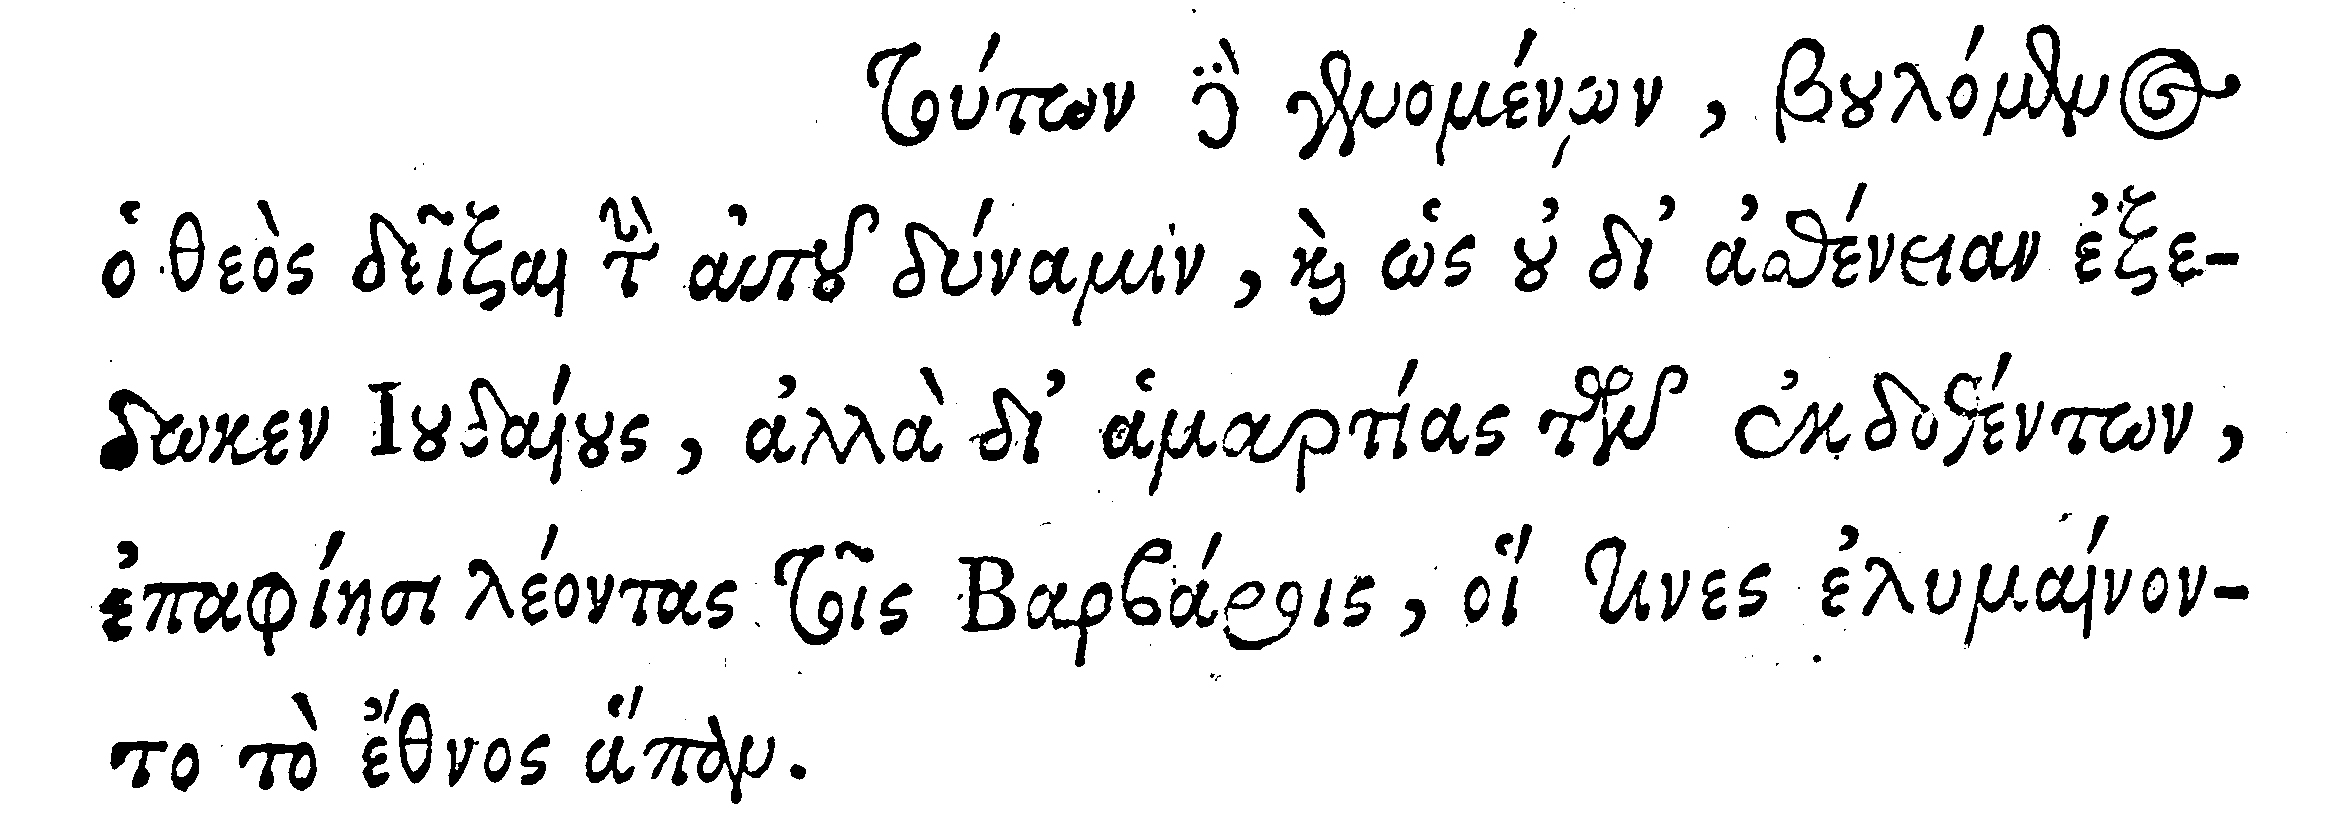 Τούτων δὲ γενομένων, βουλόμενος
ὁ θεὸς δεῖξαι τὴν αὐτοῦ δύναμιν, καὶ ὡς οὐ δι’ ἀσθένειαν ἐξε-
δωκεν Ιουδαίους, ἀλλὰ δι’ ἁμαρτίας τῶν ἐκδοθέντων,
ἐπαφίησι λέοντας τοῖς Βαρβάροις, οἵ τινες ἐλυμαίνον-
το τὸ ἔθνος ἅπαν.